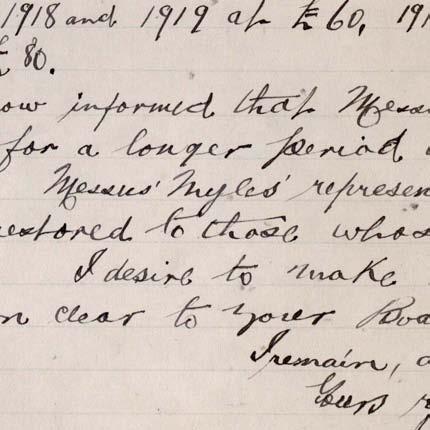 1918 and 1919 at £60, 191
£80.
ow informed that Messrs
for a longer period
Messrs' Myles' represen
restored to those whos
I desire to make
n clear to your Boa
I remain, a
Yours r